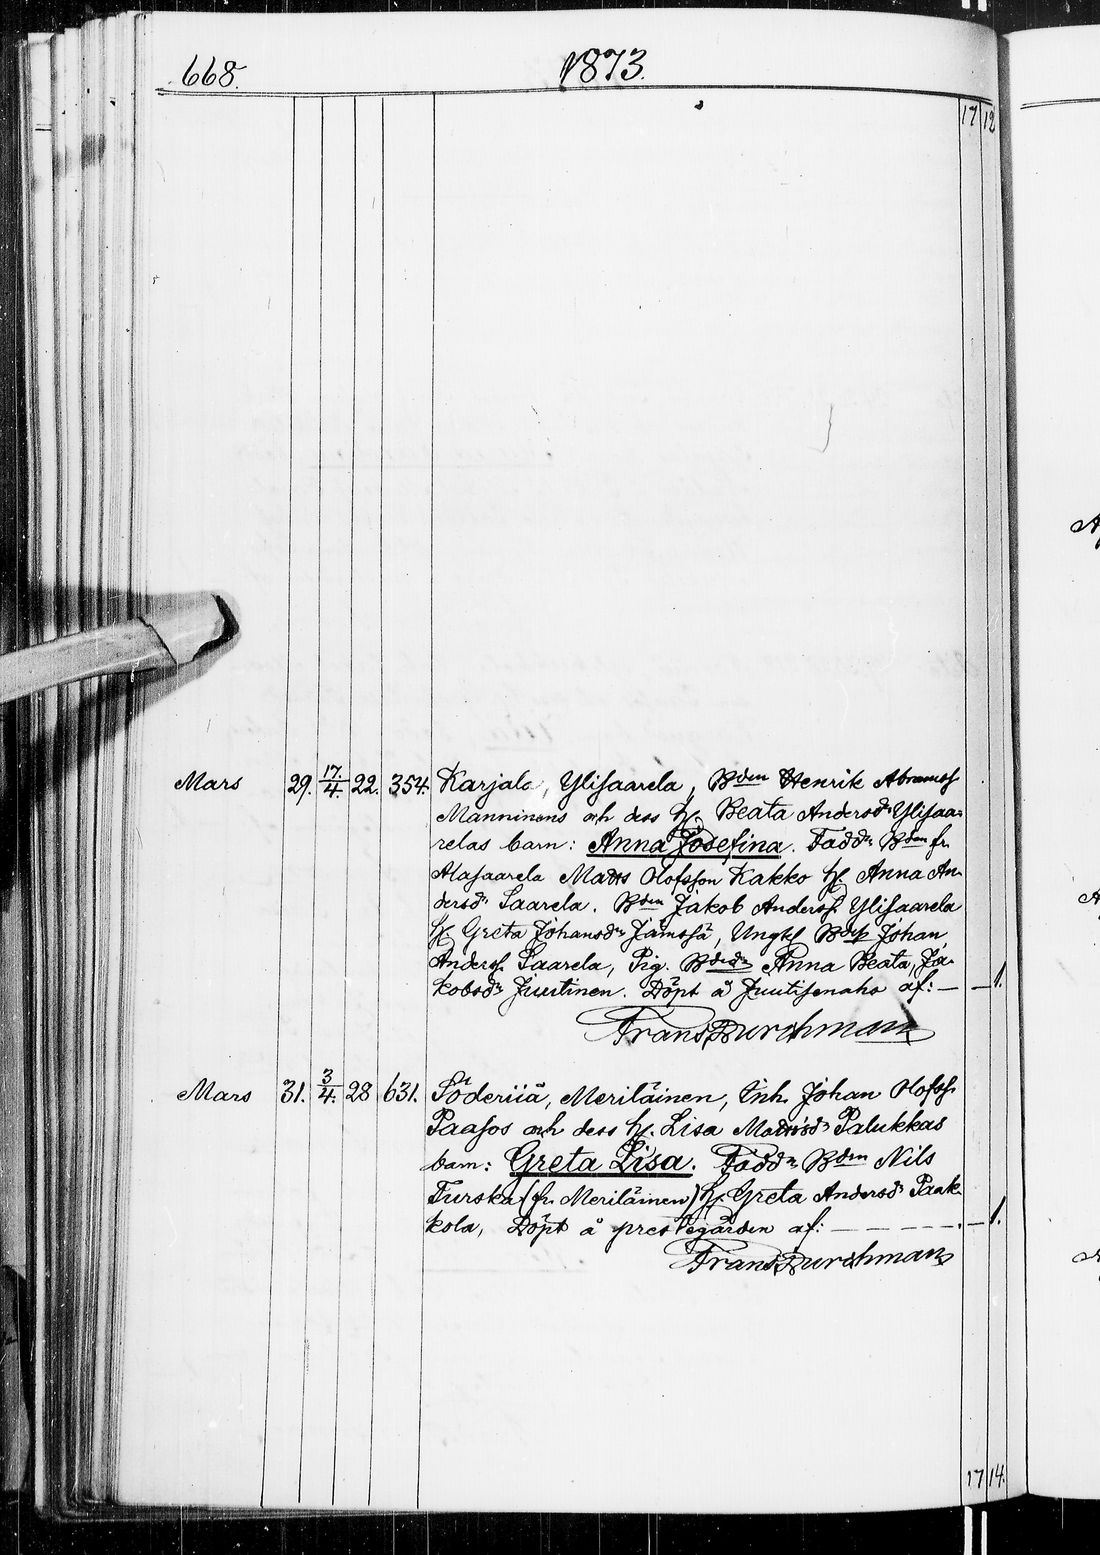 668. 1873.
17 12
Mars 29. 17./4. 22. 354. Karjala, Ylisaarela, Bden Henrik Abramsf
Manninens och dess H. Beata Andersdr Ylisaa-
relas barn: Anna Josefina. Faddr Bden fr.
Alasaarela Matts Olofsson Kakko H. Anna An-
dersdr Saarela. Bden Jakob Andersf. Ylisaarela
H. Greta Johansdr Jämssä, Ungk Johan
Andersf. Saarela, Pig. Anna Beata, Ja-
kobsdr Juutinen. Döpt å Juutisenaho af: — — 1.
Frans Burchman
Mars 31. 3/4. 28 631. Meriläinen, Inh. Johan Olofsf.
Paasos och dess H. Lisa Mattsdr Palukkas
barn: Greta Lisa. Faddr Bden Nils
Turska (fr. Meriläinen) H. Greta Andersdr Paak-
kola, Döpt å prestegården af: — — — — 1.
Frans Burchman
17 14.